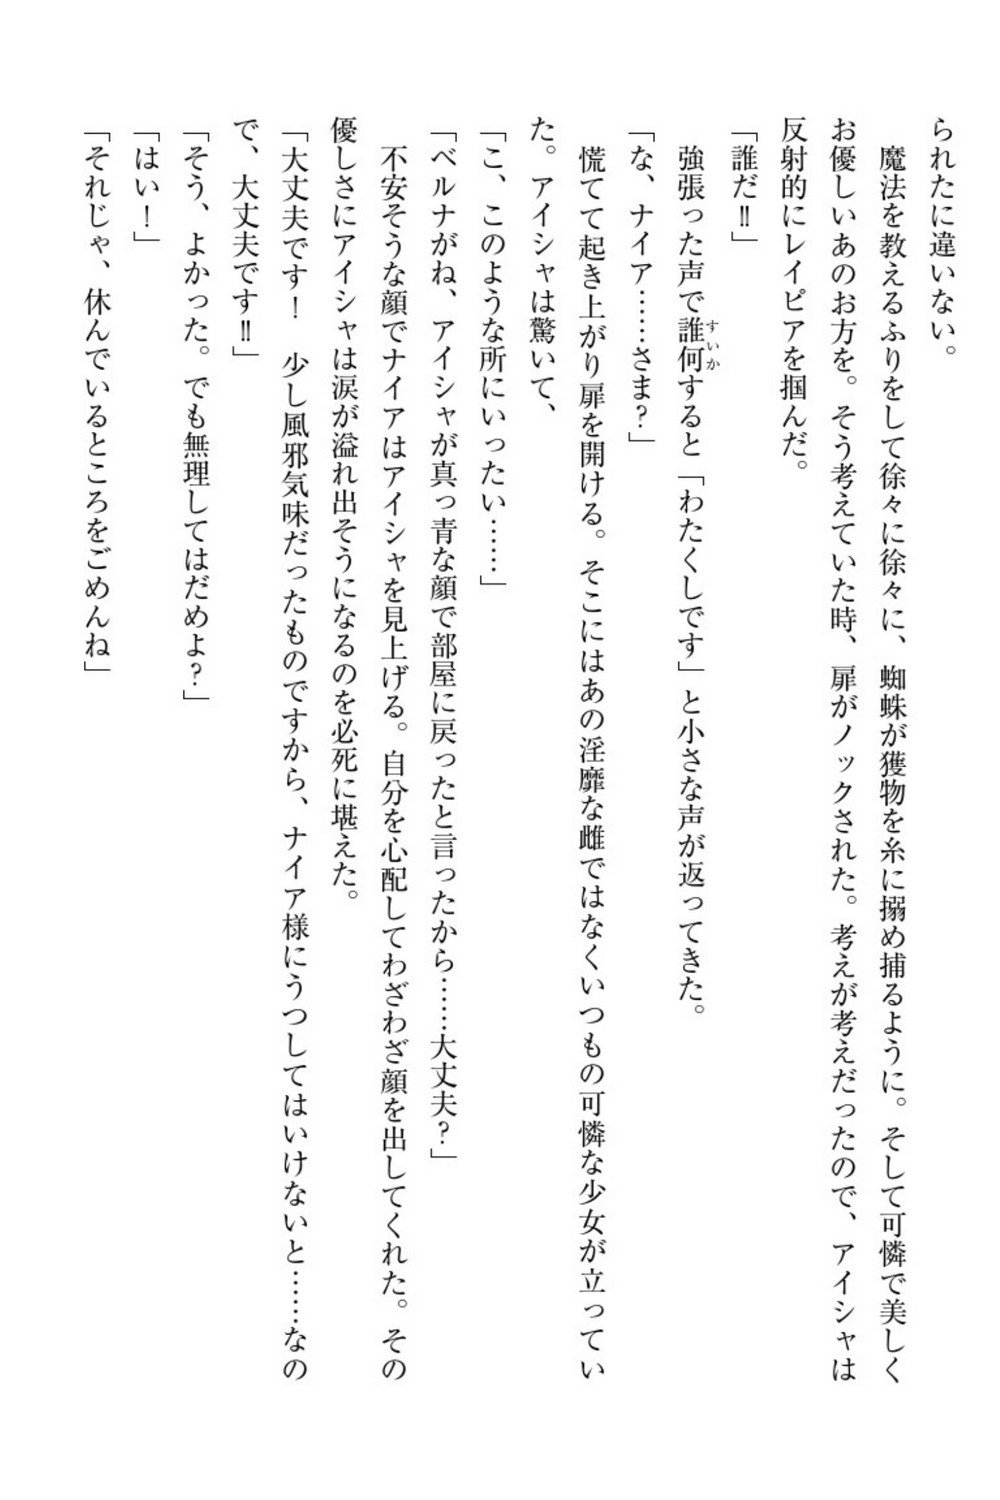 られたに違いない。
魔法を教えるふりをして徐々に徐々に、蜘蛛が獲物を糸に搦め捕るように。そして可憐で美しく
お優しいあのお方を。そう考えていた時、扉がノックされた。考えが考えだったので、アイシャは
反射的にレイピアを掴んだ。
「誰だ‼」
強張った声で誰何すると「わたくしです」と小さな声が返ってきた。
すいか
「な、ナイア……さま?」
慌てて起き上がり扉を開ける。そこにはあの淫靡な雌ではなくいつもの可憐な少女が立ってい
た。アイシャは驚いて、
「こ、このような所にいったい……」
「ベルナがね、アイシャが真っ青な顔で部屋に戻ったと言ったから……大丈夫?」
不安そうな顔でナイアはアイシャを見上げる。自分を心配してわざわざ顔を出してくれた。その
優しさにアイシャは涙が溢れ出そうになるのを必死に堪えた。
「大丈夫です! 少し風邪気味だったものですから、ナイア様にうつしてはいけないと……なの
で、大丈夫です‼」
「そう、よかった。でも無理してはだめよ?」
「はい!」
「それじゃ、休んでいるところをごめんね」